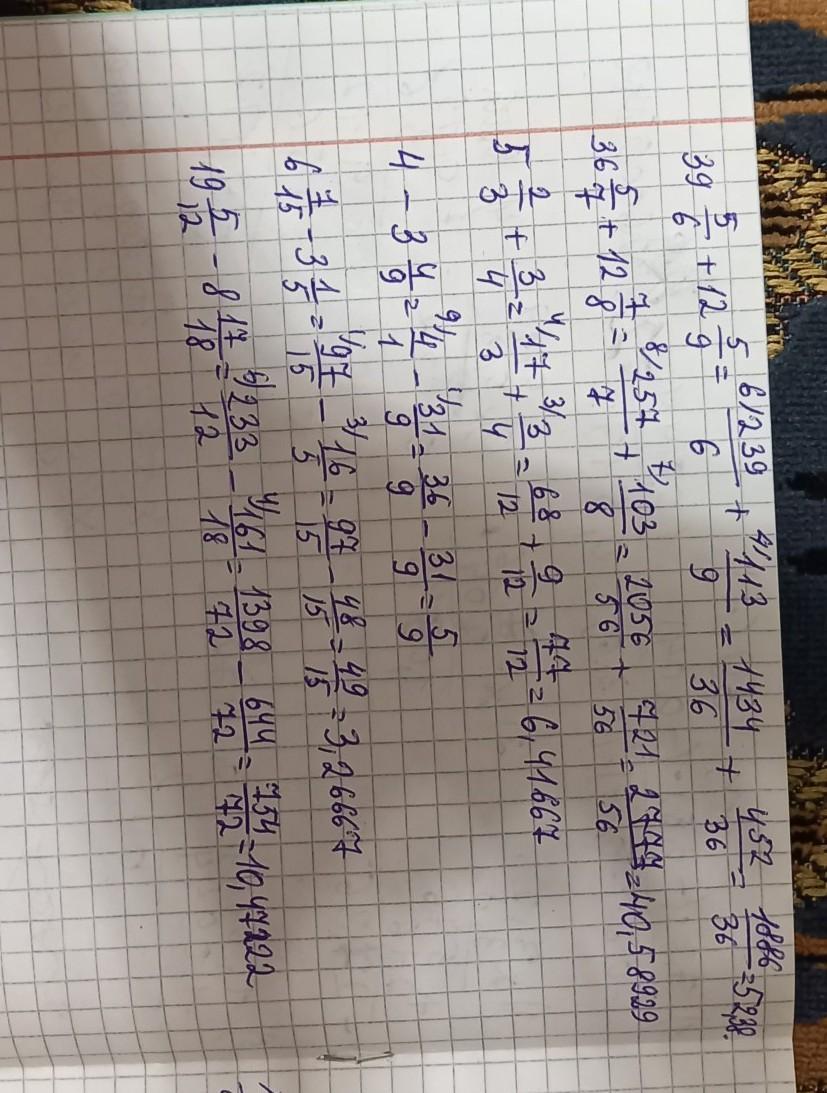 39 5/6 + 12 5/9 = 6/ 239/6 + 4/ 113/9 = 1434/36 + 452/36 = 1886/36 = 52,38.
36 5/7 + 12 7/8 = 8/ 257/7 + 7/ 103/8 = 2056/56 + 721/56 = 2777/56 = 40,58929
5 2/3 + 3/4 = 4/ 17/3 + 3/ 3/4 = 68/12 + 9/12 = 77/12 = 6,41667
4 - 3 4/9 = 9/ 4/1 - 1/ 31/9 = 36/9 - 31/9 = 5/9
6 7/15 - 3 1/5 = 1/ 97/15 - 3/ 16/5 = 97/15 - 48/15 = 49/15 = 3,26667
19 5/12 - 8 17/18 = 6/ 233/12 - 4/ 161/18 = 1398/72 - 644/72 = 754/72 = 10,47222